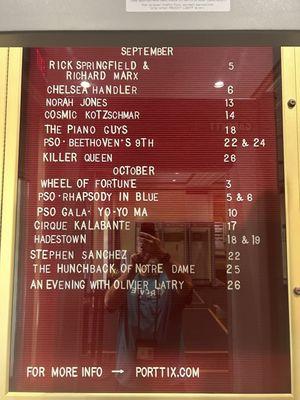 SEPTEMBER
RICK SPRINGFIELD &
RICHARD MARX 5
CHELSEA HANDLER 6
NORAH JONES 13
COSMIC KOTZSCHMAR 14
THE PIANO GUYS 18
PSO-BEETHOVEN'S 9TH 22 & 24
KILLER QUEEN 26
OCTOBER
WHEEL OF FORTUNE 3
PSO-RHAPSODY IN BLUE 5 & 6
PSO GALA- YO-YO MA 10
CIRQUE KALABANTE 17
HADESTOWN 18 & 19
STEPHEN SANCHEZ 22
THE HUNCHBACK OF NOTRE DAME 25
AN EVENING WITH OLIVIER LATRY 26
FOR MORE INFO → PORTTIX.COM